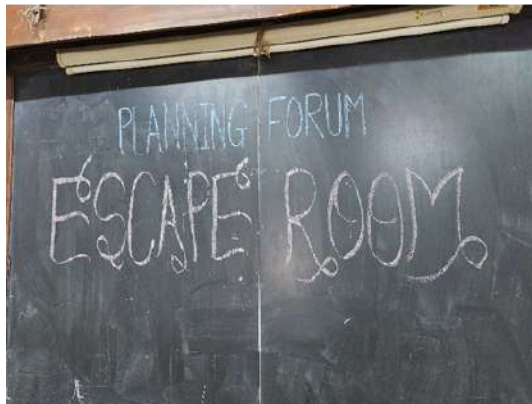 PLANNING FORUM
ESCAPE ROOM